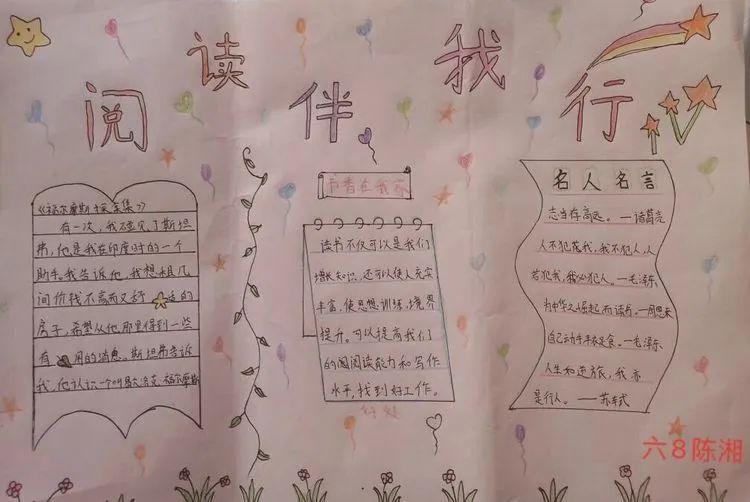 阅读伴我行
《福尔摩斯探案集》
有一次，我碰见了斯坦
弗，他是我在印度时的一个
助手。我告诉他，我想租几
间价钱不高而又舒适的
房子，希望从他那里得到一些
有用的消息。斯坦弗告诉
我，他认识一个叫夏洛克·福尔摩斯
书香在我家
读书不仅可以是我们
增长知识，还可以使人充实
丰富，使思想训练，境界
提升。可以提高我们
的阅阅读能力和写作
水平，找到好工作。
好处
名人名言
志当存高远。——诸葛亮
人不犯我，我不犯人，人
若犯我，我必犯人。—毛泽东
为中华之崛起而读书。—周恩来
自己动手丰衣足食。—毛泽东
人生如逆旅，我亦
是行人。——苏轼
六8陈湘